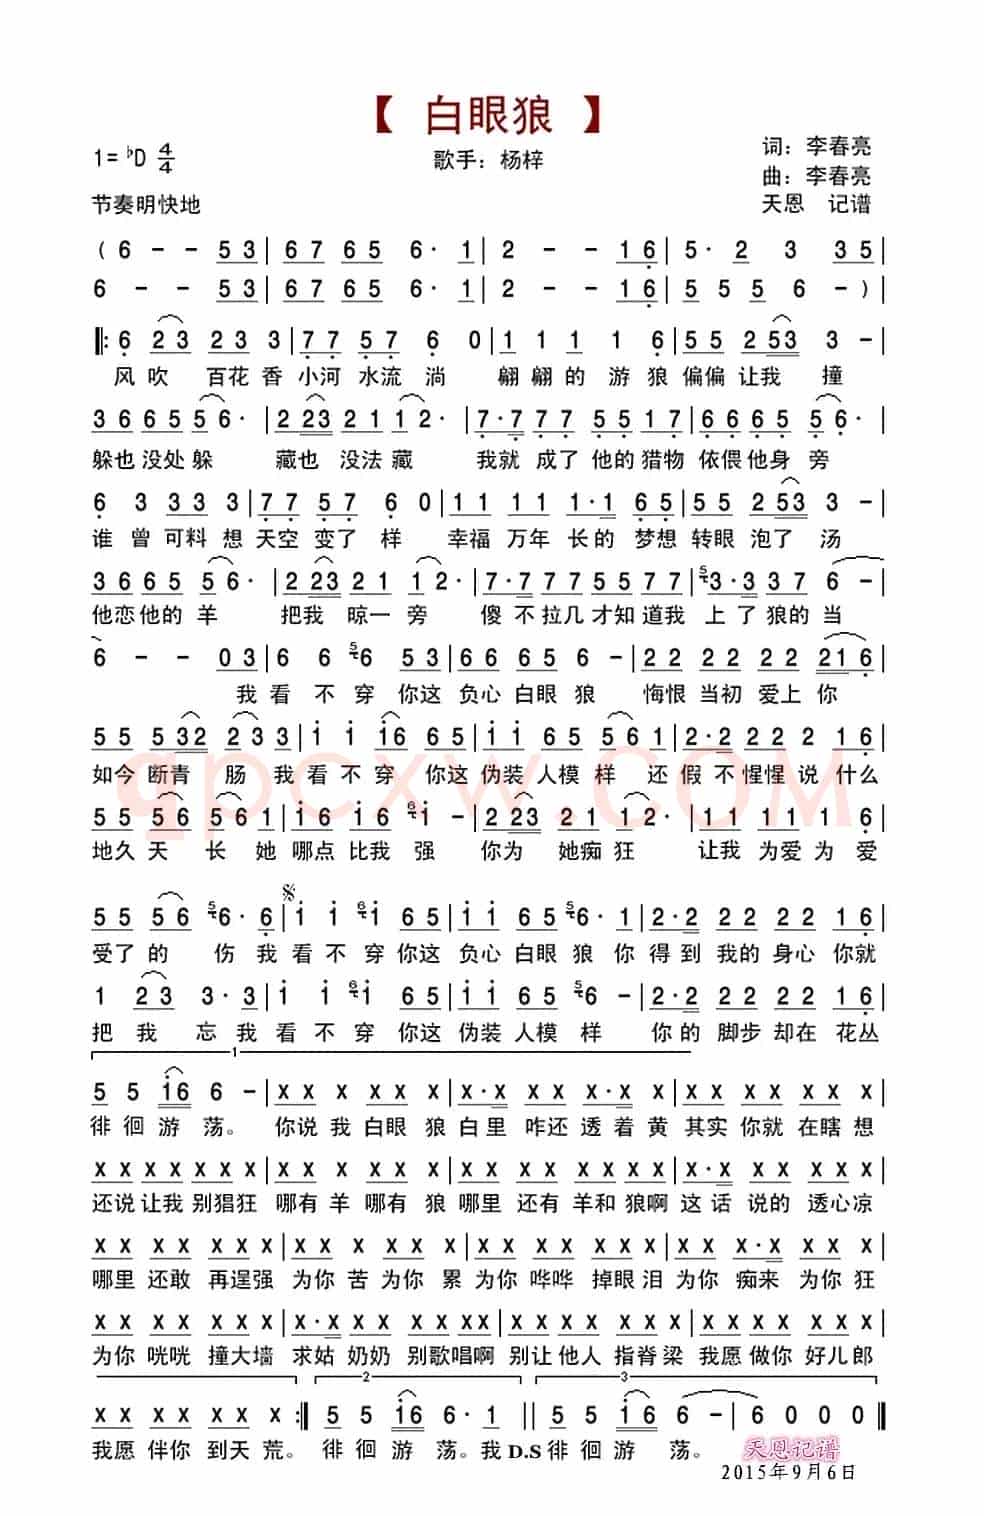 【 白眼狼 】
1= ♭D 4/4 歌手：杨梓 词：李春亮
曲：李春亮
节奏明快地 天恩 记谱
( 6 - - 5 3 | 6 7 6 5 6· 1 | 2 - - 1 6 | 5· 2 3 3 5 |
6 - - 5 3 | 6 7 6 5 6· 1 | 2 - - 1 6 | 5 5 5 6 - ) |
‖: 6 2 3 2 3 3 | 7 7 5 7 6 0 | 1 1 1 1 6 | 5 5 2 5 3 3 - |
风吹 百花香 小河水流淌 翩翩的游狼偏偏让我 撞
3 6 6 5 5 6· | 2 2 3 2 1 1 2· | 7· 7 7 7 5 5 1 7 | 6 6 6 6 5 6· |
躲也没处躲 藏也 没法藏 我就 成了他的猎物依偎他身旁
6 3 3 3 3 | 7 7 5 7 6 0 | 1 1 1 1 1· 1 6 5 | 5 5 2 5 3 3 - |
谁曾可料想天空变了样 幸福万年长的梦想转眼泡了汤
3 6 6 5 5 6· | 2 2 3 2 1 1 2· | 7· 7 7 7 5 5 7 7 | 5 3· 3 3 7 6 - |
他恋他的羊 把我 晾一旁 傻不拉几才知道我上了狼的当
6 - - 0 3 | 6 6 5 6 5 3 | 6 6 6 5 6 - | 2 2 2 2 2 2 2 1 6 |
我看不穿你这负心白眼狼 悔恨当初爱上你
5 5 5 3 2 2 3 3 | 1 1 1 6 6 5 | 1 1 6 5 5 6 1 | 2· 2 2 2 2 1 6 |
如今断青肠 我看不穿你这伪装人模样 还假不惺惺说什么
5 5 5 6 5 6 1 | 1 6 1 6 6 1 - | 2 2 3 2 1 2· 1 | 1 1 1 1 1 6 |
地久天长她哪点比我强 你为 她痴狂 让我为爱为爱
5 5 5 6 5 6· 6 | 1 1 6 1 6 5 | 1 1 6 5 5 6· 1 | 2· 2 2 2 2 2 1 6 |
受了的 伤我看不穿你这负心白眼狼你得到我的身心你就
1 2 3 3· 3 | 1 1 6 1 6 5 | 1 1 6 5 5 6 - | 2· 2 2 2 2 2 1 6 |
把我 忘我看不穿你这伪装人模样 你的脚步却在花丛
1
5 5 1 6 6 - | X X X X X X X | X· X X X X X X | X X X X X X X |
徘徊游荡。 你说我白眼狼白里咋还透着黄其实你就在瞎想
X X X X X X X | X X X X X X | X X X X X X X X | X· X X X X X X |
还说让我别猖狂 哪有羊哪有狼哪里还有羊和狼啊这话说的透心凉
X X X X X X X | X X X X X X | X X X X X X X | X X X· X X X X |
哪里还敢再逞强为你苦为你累为你哗哗掉眼泪为你痴来为你狂
X X X X X X X | X· X X X X X X X | X X X X X X X | X X X X X X X |
为你咣咣撞大墙求姑奶奶别歌唱啊别让他人指脊梁我愿做你好儿郎
2 3
X X X X X X X :‖ 5 5 1 6 6· 1 ‖ 5 5 1 6 6 - | 6 0 0 0 ‖
我愿伴你到天荒。徘徊游荡。我D.S徘徊游荡。
天恩记谱
2015年9月6日
qpcxw.COM